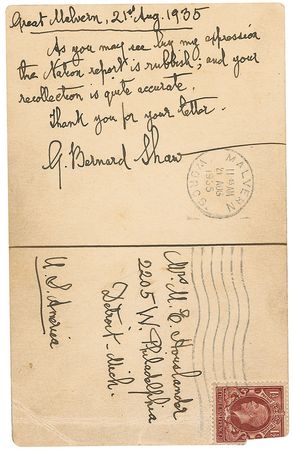 Great Malvern, 21st Aug. 1935
As you may see by my expression
the Nation report is rubbish, and your
recollection is quite accurate.
Thank you for your letter.
G. Bernard Shaw
MALVERN
11 AM
21 AUG
1935
WORCS.
Mrs M. E. Houslander
2205 W Philadelphia
Detroit - Mich.
U.S. America